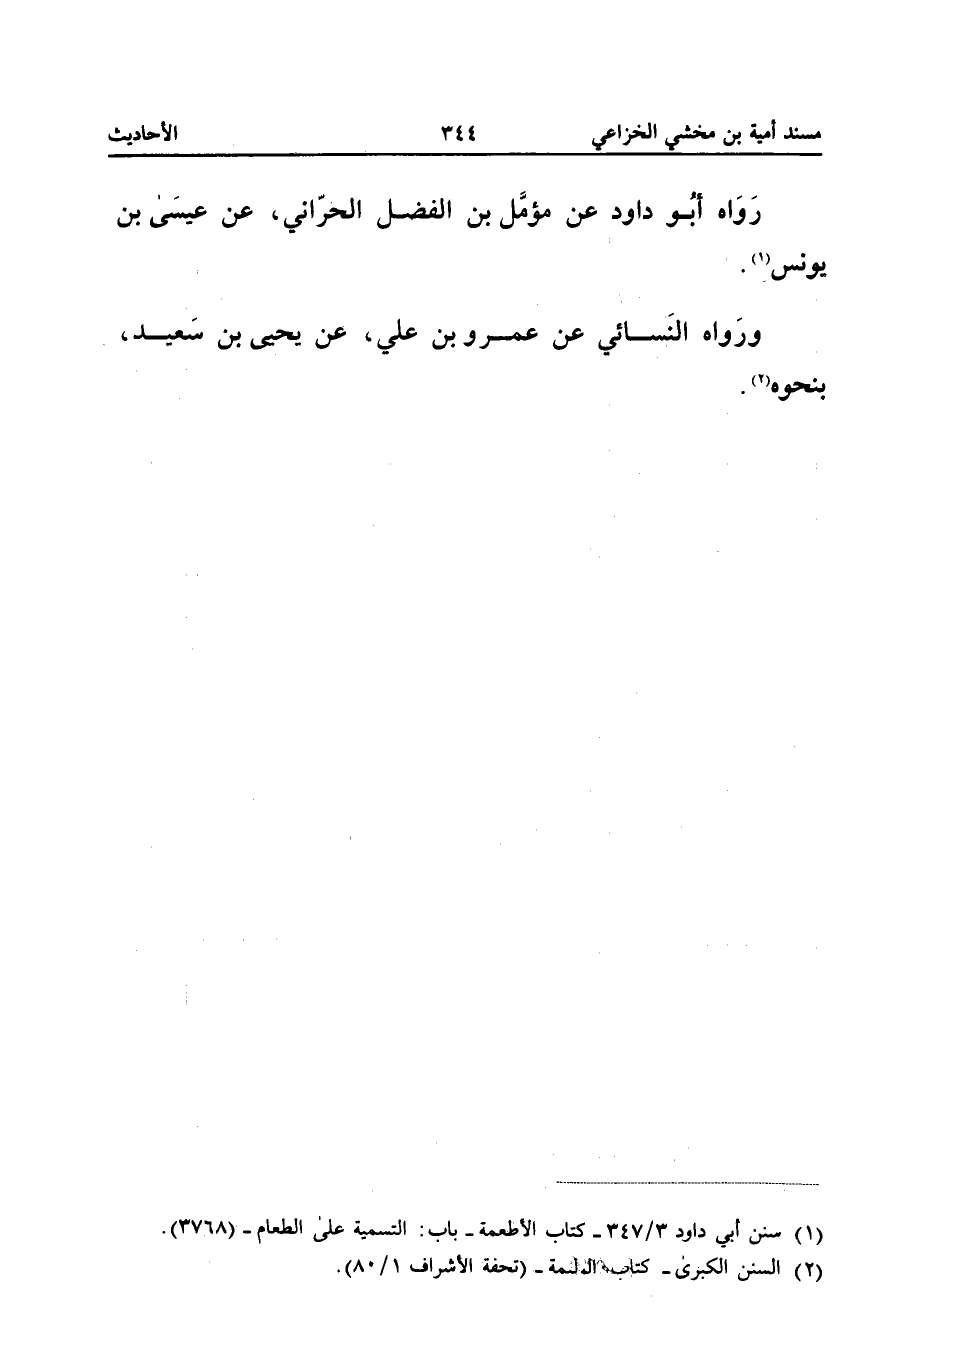 مسند أمية بن مخشي الخزاعي ٣٤٤ الأحاديث
رَوَاه أبُو داود عن مؤمَّل بن الفضل الحرّاني، عن عيسَىٰ بن
يونس(١).
ورَواه النَسائي عن عمرو بن علي، عن يحيى بن سَعيد،
بنحوه(٢).
(١) سنن أبي داود ٣٤٧/٣ ـ كتاب الأطعمة ـ باب: التسمية علىٰ الطعام ـ (٣٧٦٨).
(٢) السنن الكبرىٰ ـ كتاب ـ (تحفة الأشراف ٨٠/١).